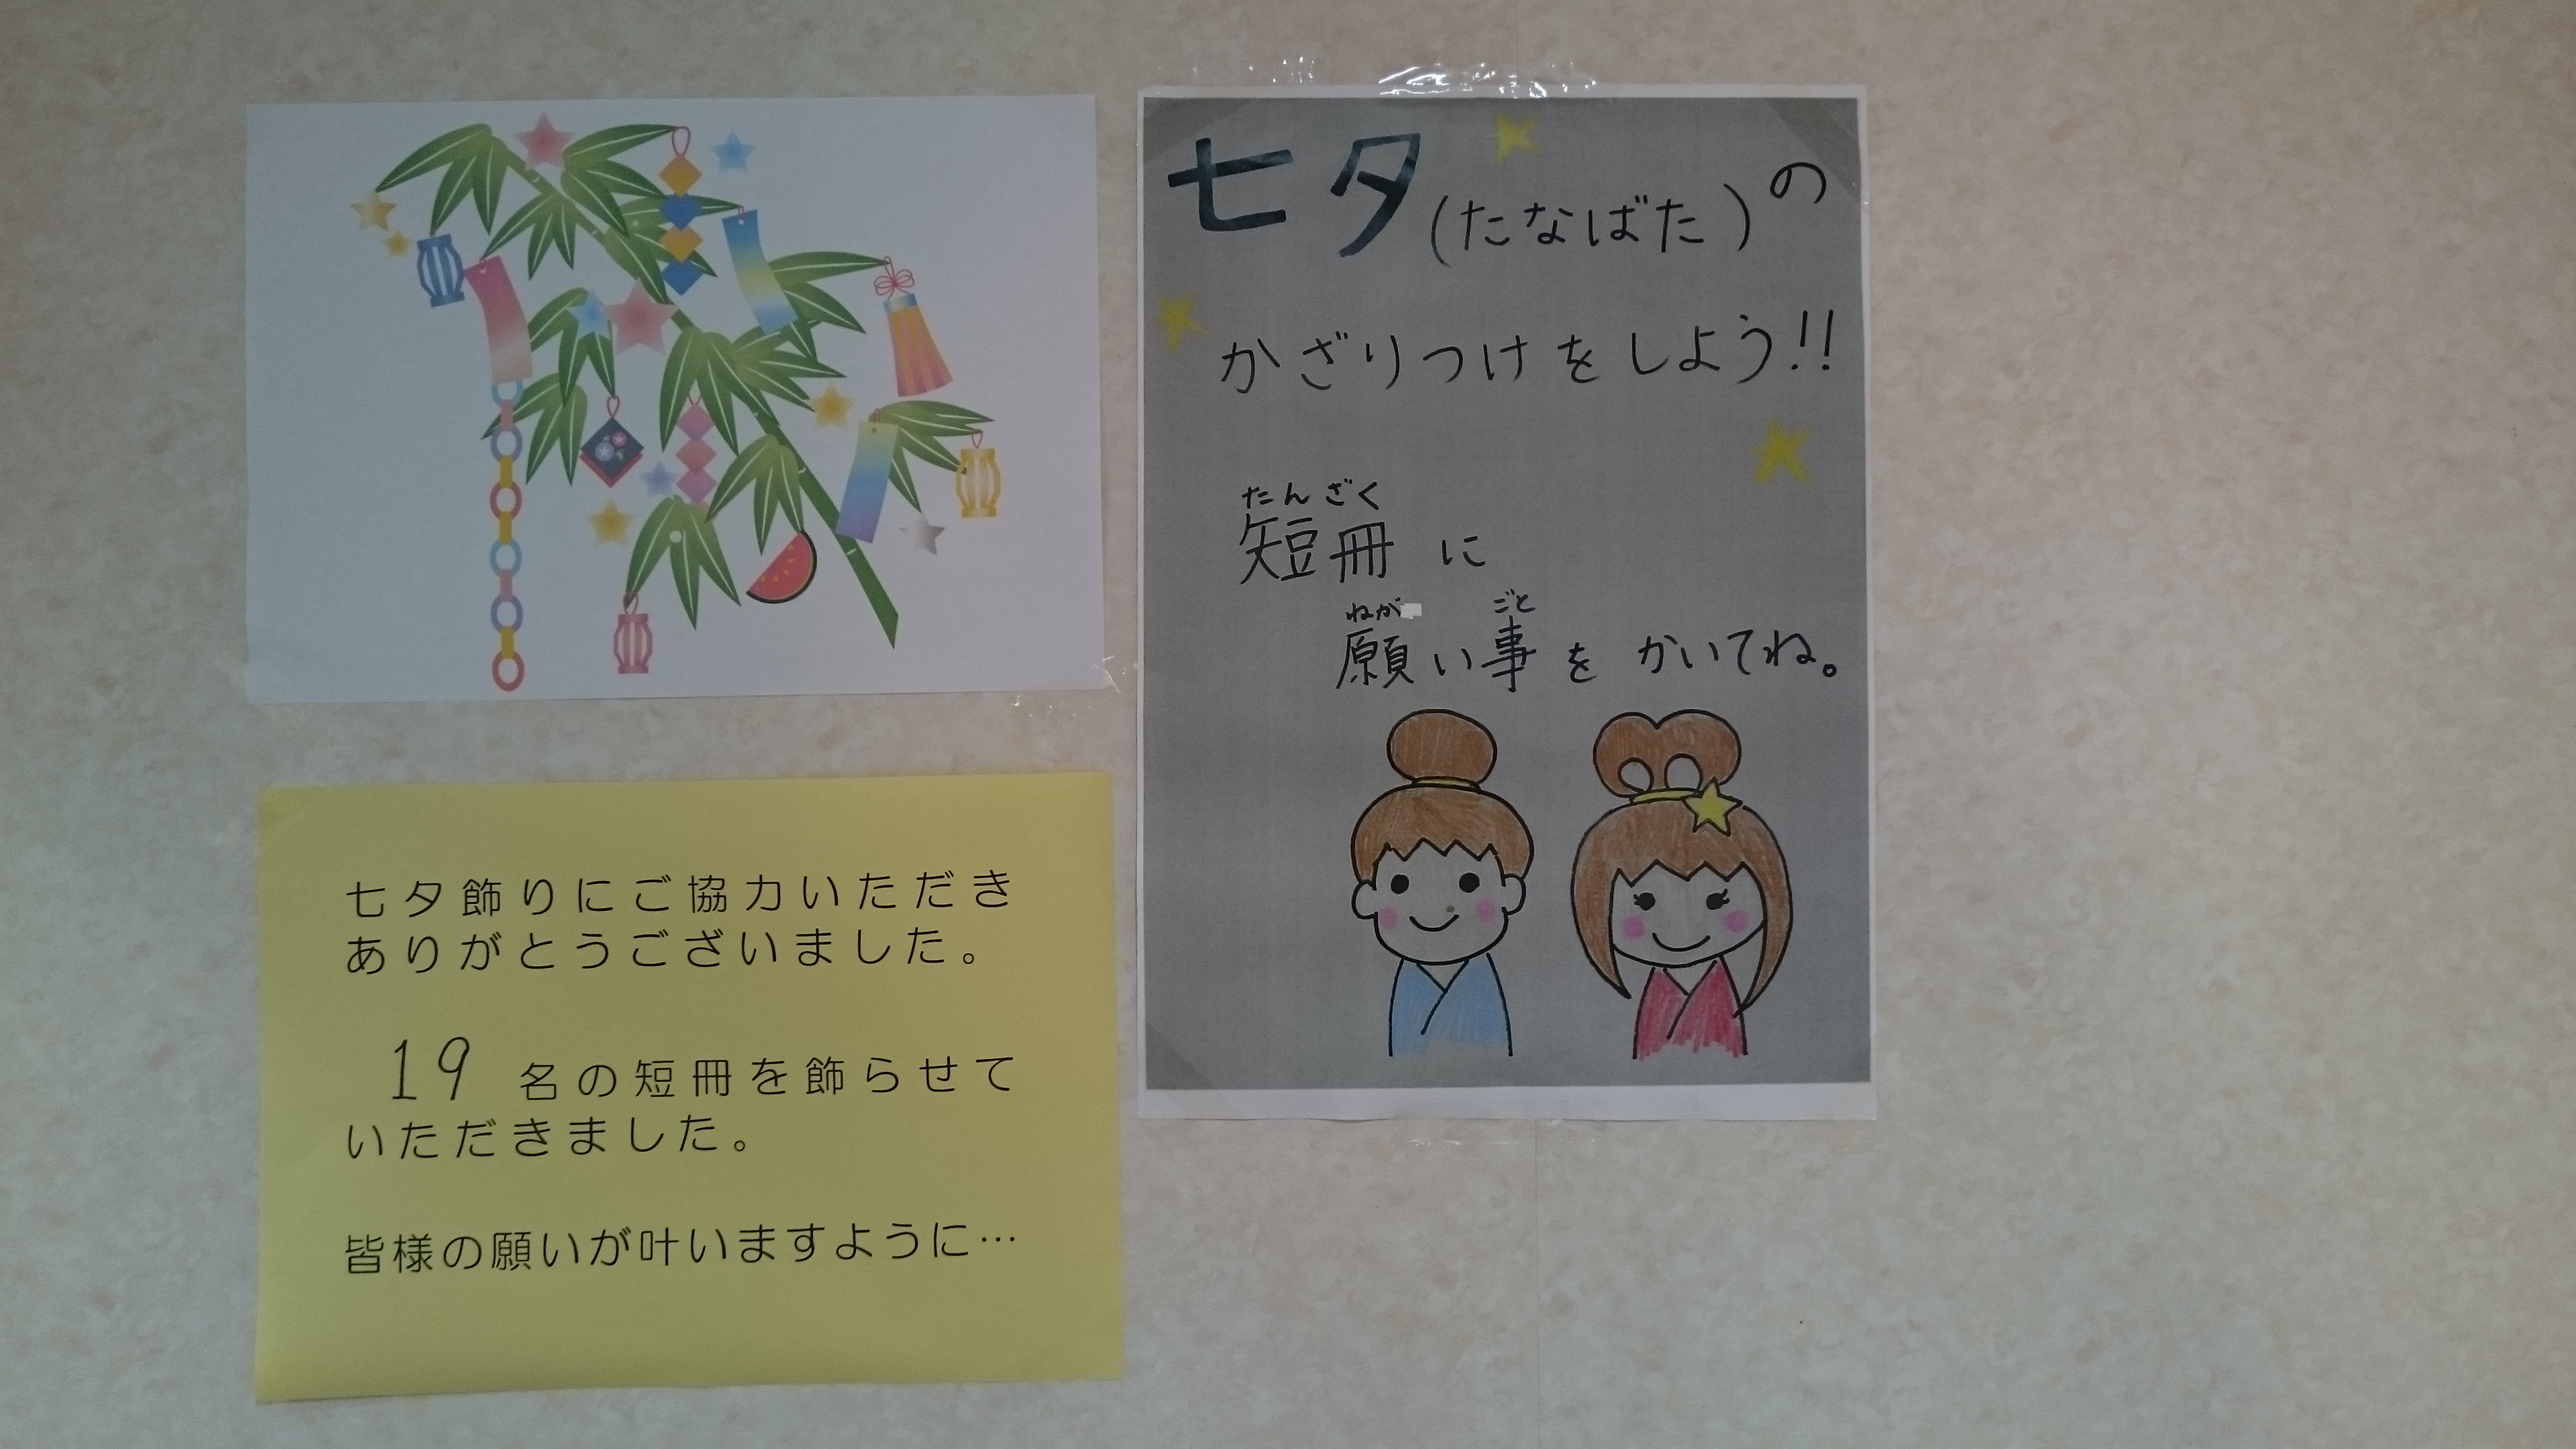 七夕(たなばた)の
かざりつけをしよう!!
たんざく
短冊に
ねが ごと
願い事をかいてね。
七夕飾りにご協力いただき
ありがとうございました。
19名の短冊を飾らせて
いただきました。
皆様の願いが叶いますように…